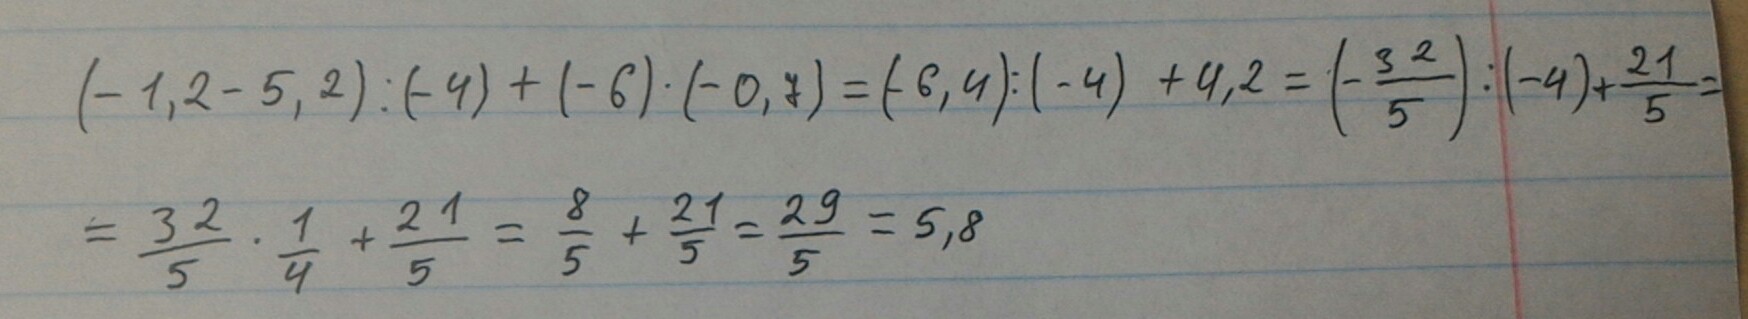 (-1,2-5,2):(-4)+(-6)·(-0,7)=(-6,4):(-4)+4,2=(-32/5):(-4)+21/5=
=32/5·1/4+21/5=8/5+21/5=29/5=5,8